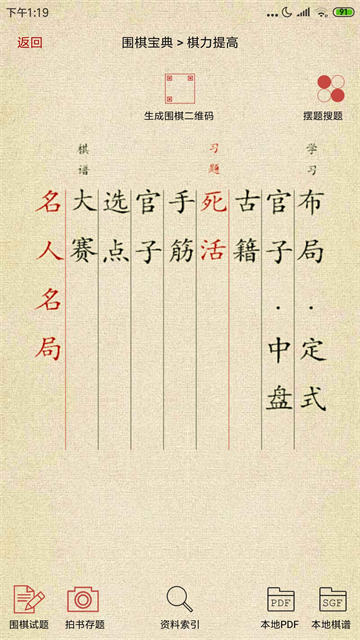 下午1:19
91
返回
围棋宝典 > 棋力提高
生成围棋二维码
摆题搜题
学习
习题
棋谱
布局·定式
官子·中盘
古籍
死活
手筋
官子
选点
大赛
名人名局
围棋试题
拍书存题
资料索引
PDF
本地PDF
SGF
本地棋谱